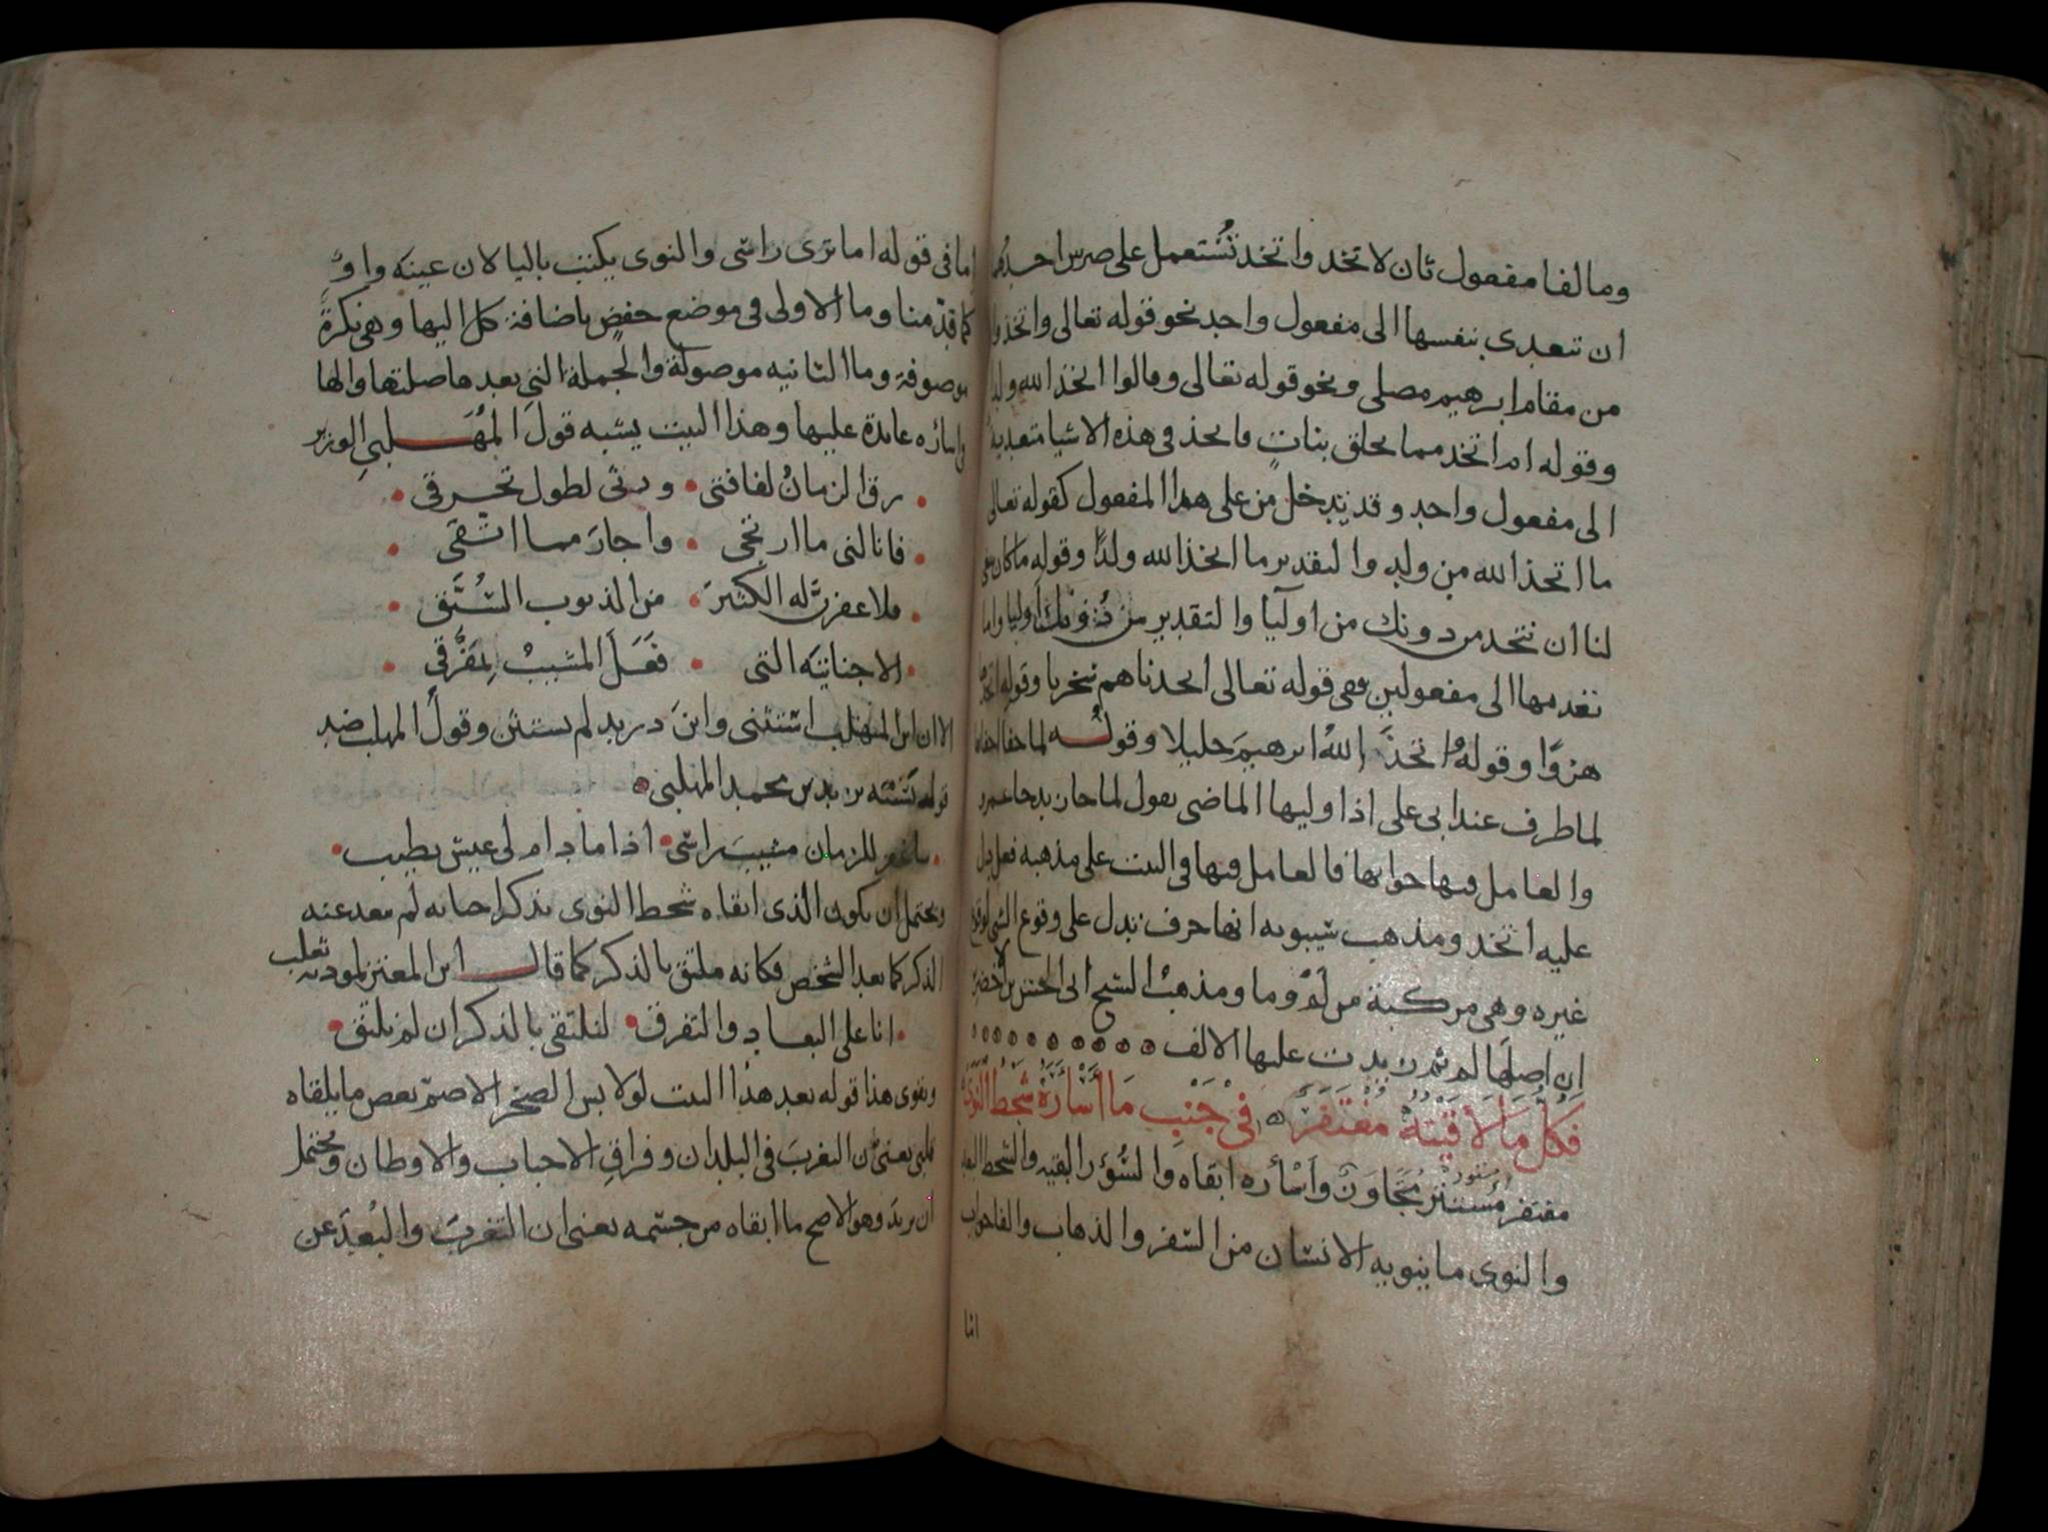 ومالفا مفعول ثان لاتخذ واتخذ تستعمل على ضربين احدهما
ان تتعدى بنفسها الى مفعول واحد نحو قوله تعالى واتخذوا
من مقام ابرهيم مصلى ونحو قوله تعالى وقالوا اتخذ الله ولدا
وقوله ام اتخذ مما يخلق بنات فاتخذ في هذه الاشيا متعدية
الى مفعول واحد وقد تدخل من على هذا المفعول كقوله تعالى
ما اتخذ الله من ولد والتقدير ما اتخذ الله ولدًا وقوله ما كان ينبغي
لنا ان نتخذ من دونك من اوليآ والتقدير من دونك اوليا واما
تعديها الى مفعولين ففي قوله تعالى اتخذناهم سخريا وقوله
هزوًا وقوله واتخذَ اللهُ ابرهيمَ خليلا وقوله لما جفا اجفانها
لما ظرف عند ابي علي اذا وليها الماضي تقول لما جا زيد جا عمرو
والعامل فيها جوابها فالعامل فيها في البيت على مذهبه فعل يدل
عليه اتخذ ومذهب سيبويه انها حرف تدل على وقوع الشي لوقوع
غيره وهي مركبة من لم وما ومذهب الشيخ ابي الحسن بن الاخضر
ان اصلها لم ثم زيدت عليها الالف
فكُلُّ مَا لاَقَيْتُهُ مُغْتَفَرٌ في جَنْبِ مَا اَسْاَرَهُ شَحْطُ النَّوَى
مغتفر مُستتر مُتَجَاوَز وَاَسْأره ابقاه والسُّؤر البقيه والشحط البعد
والنوى ما ينويه الانسان من السفر والذهاب والفا جواب
اما
اما في قوله اما ترى راسي والنوى يكتب باليا لان عينه واوٌ
كما قدّمنا وما الاولى في موضع خفضٍ باضافة كل اليها وهي نكرةٌ
موصوفة وما الثانيه موصولة والجملة التي بعدها صلتها والها
في اسأره عايدة عليها وهذا البيت يشبه قولَ المُهَلبي الوزير
رق الزمانُ لفاقتي ورثى لطول تحرقي
فانالني ما ارتجي واجارَ مما اتّقي
فلاغفرنّ له الكثيرَ من الذنوب السُّبَّق
الا جنايته التي فَعَلَ المشيبُ بمَفْرَقي
الا ان ابن المهلب استثنى وابنَ دريد لم يستثن وقولُ المهلب ضد
قول يزيد بن محمد المهلبي
ساغفر للزمان مشيبَ راسي اذا ما دام لي عيش يطيب
ويحتمل ان يكون الذي ابقاه شحط النوى تذكر احبابه لم يبعد عنه
الذكر كما بعد الشخص فكانه ملتق بالذكر كما قال ابن المعتز لمودبه ثعلب
انا على البعاد والتفرق لنلتقي بالذكر ان لم نلتق
ويقوي هذا قوله بعد هذا البيت لو لابس الصخر الاصمّ بعض ما يلقاه
قلبي يعني من التغربَ في البلدان وفراقِ الاحباب والاوطان ويُحتمل
ان يريدَ وهو الاصح ما ابقاه من جسمه يعني ان التغربَ والبُعدَ عن